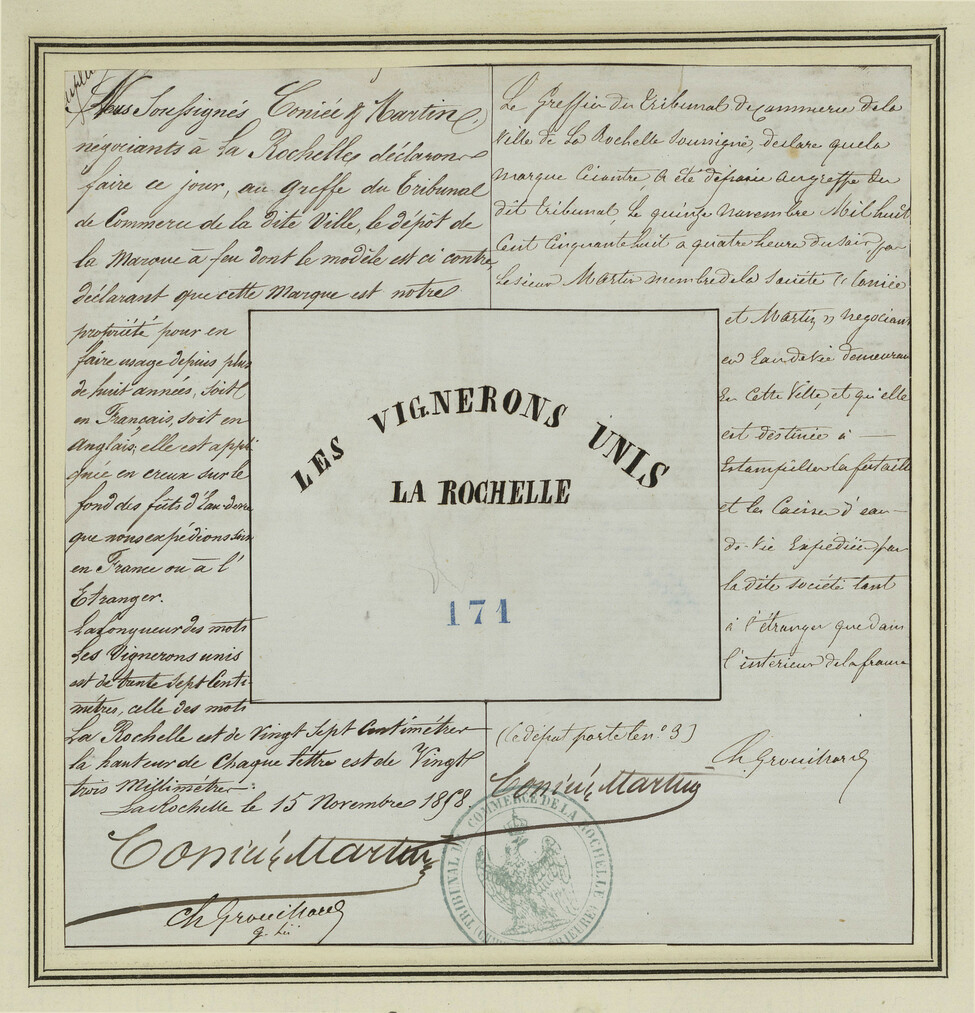 Nous Soussignés Coniée & Martin,
négociants à La Rochelles déclarons
faire ce jour, au Greffe du Tribunal
de Commerce de la dite Ville, le dépôt de
la Marque à feu dont le modèle est ci contre
déclarant que cette Marque est notre
propriété pour en
faire usage depuis plus
de huit années, soit
en Français, soit en
Anglais; elle est appli
quée en creux sur le
fond des fûts d'Eau-de-vie
que nous expédions soit
en France ou à l'
Etranger.
La Longueur des mots
Les Vignerons unis
est de trente sept Centi-
mètres, celle des mots
La Rochelle est de Vingt Sept Centimètres
la hauteur de Chaque lettre est de Vingt
trois Millimètres.
La Rochelle le 15 Novembre 1858.
Coniée & Martin
Ch Grouihard
LES VIGNERONS UNIS
LA ROCHELLE
171
Le Greffier du Tribunal de Commerce de la
Ville de La Rochelle Soussigné, déclare que la
marque Ci contre, a été déposée au greffe du
dit tribunal, le quinze novembre Mil huit
Cent Cinquante huit a quatre heure du soir par
Le sieur Martin membre de la société Coniée
et Martin negociant
en Eau de Vie demeurant
En Cette Ville, et qu'elle
est destinée à —
Estampiller la futaille
et les Caisses d'eau-
de-Vie Expédiées par
la dite société tant
à l'étranger que dans
l'intérieur de la france
(le dépôt porte le n.º 3)
Coniée & Martin
Ch Grouihard
TRIBUNAL DE COMMERCE DE LA ROCHELLE